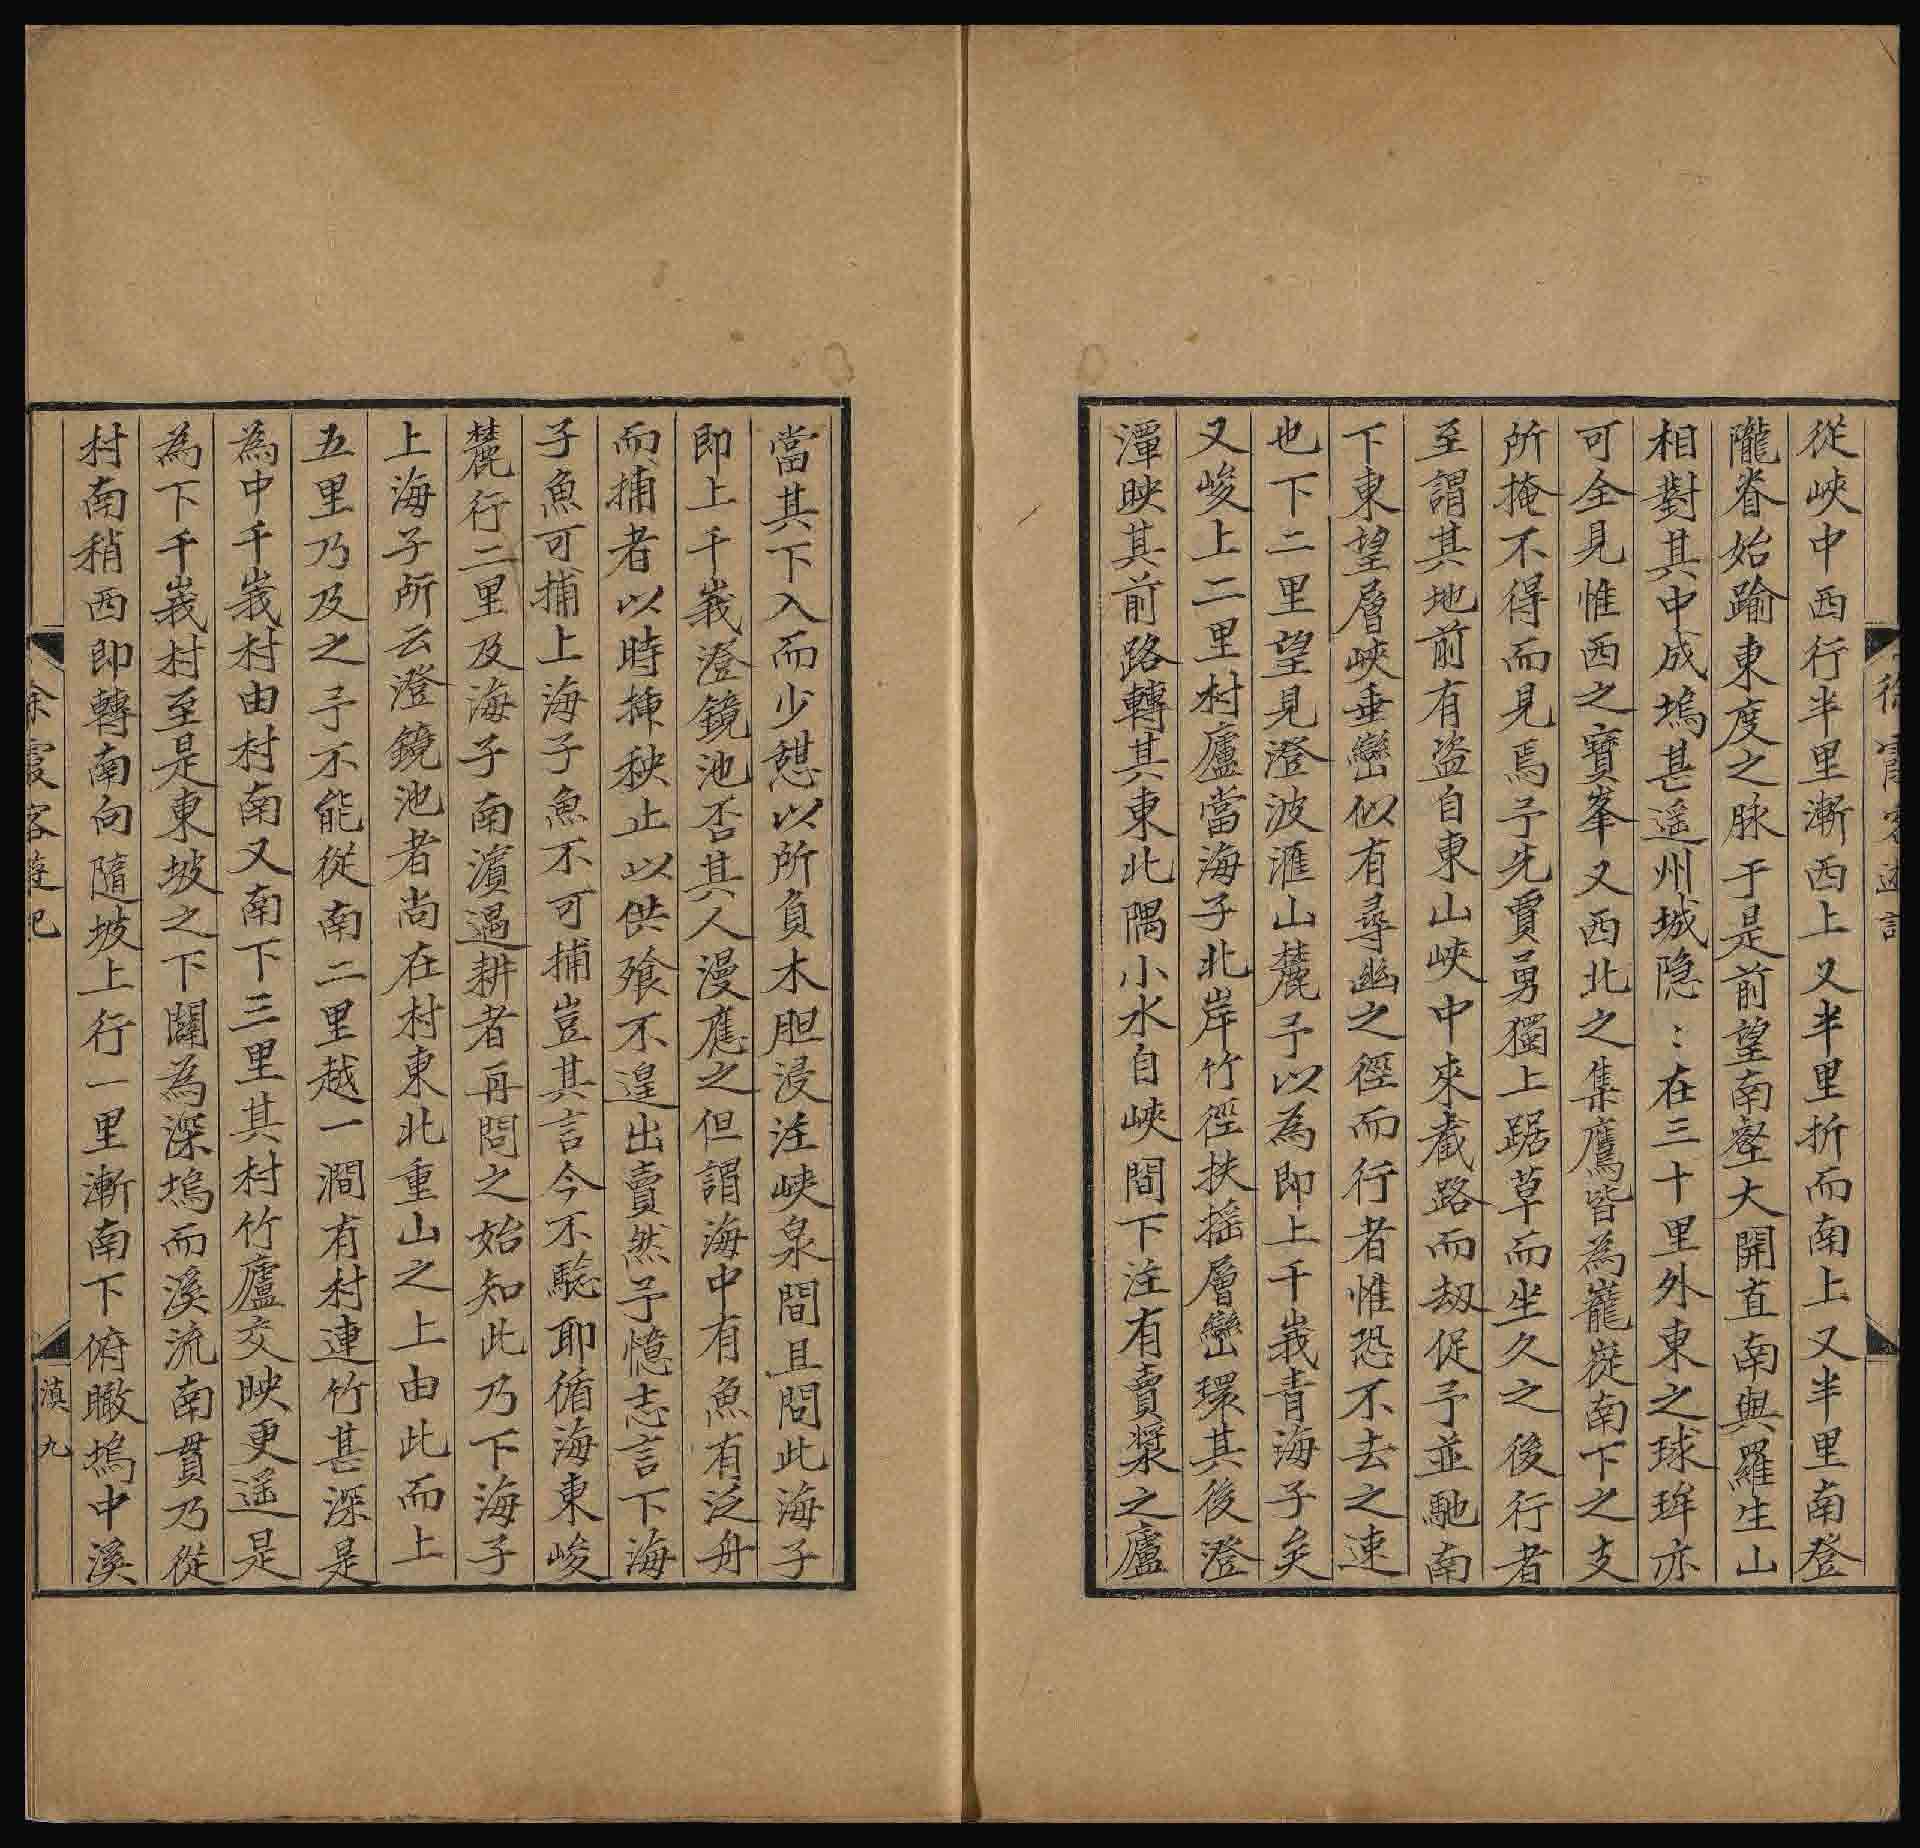 從峽中西行半里漸西上又半里折而南上又半里南登
隴脊始踰東度之脉于是前望南壑大開直南與羅生山
相對其中成塢甚遥州城隐〻在三十里外東之球牟亦
可全見惟西之寶峯又西北之集鷹皆為巃嵸南下之支
所掩不得而見焉予先賈勇獨上踞草而坐久之後行者
至謂其地前有盗自東山峽中來截路而刼促予並馳南
下東望層峽垂巒似有尋幽之徑而行者惟恐不去之速
也下二里望見澄波滙山麓予以為即上千峩青海子矣
又峻上二里村廬當海子北岸竹徑扶摇層巒環其後澄
潭映其前路轉其東北隅小水自峽間下注有賣漿之廬
當其下入而少憇以所負木胆浸注峽泉間且問此海子
即上千峩澄鏡池否其人漫應之但謂海中有魚有泛舟
而捕者以時插秧止以供飱不遑出賣然予憶志言下海
子魚可捕上海子魚不可捕豈其言今不騐耶循海東峻
麓行二里及海子南濵遇耕者再問之始知此乃下海子
上海子所云澄鏡池者尚在村東北重山之上由此而上
五里乃及之予不能從南二里越一澗有村連竹甚深是
為中千峩村由村南又南下三里其村竹廬交映更遥是
為下千峩村至是東坡之下闢為深塢而溪流南貫乃從
村南稍西即轉南向隨坡上行一里漸南下俯瞰塢中溪
徐霞客遊記
滇九